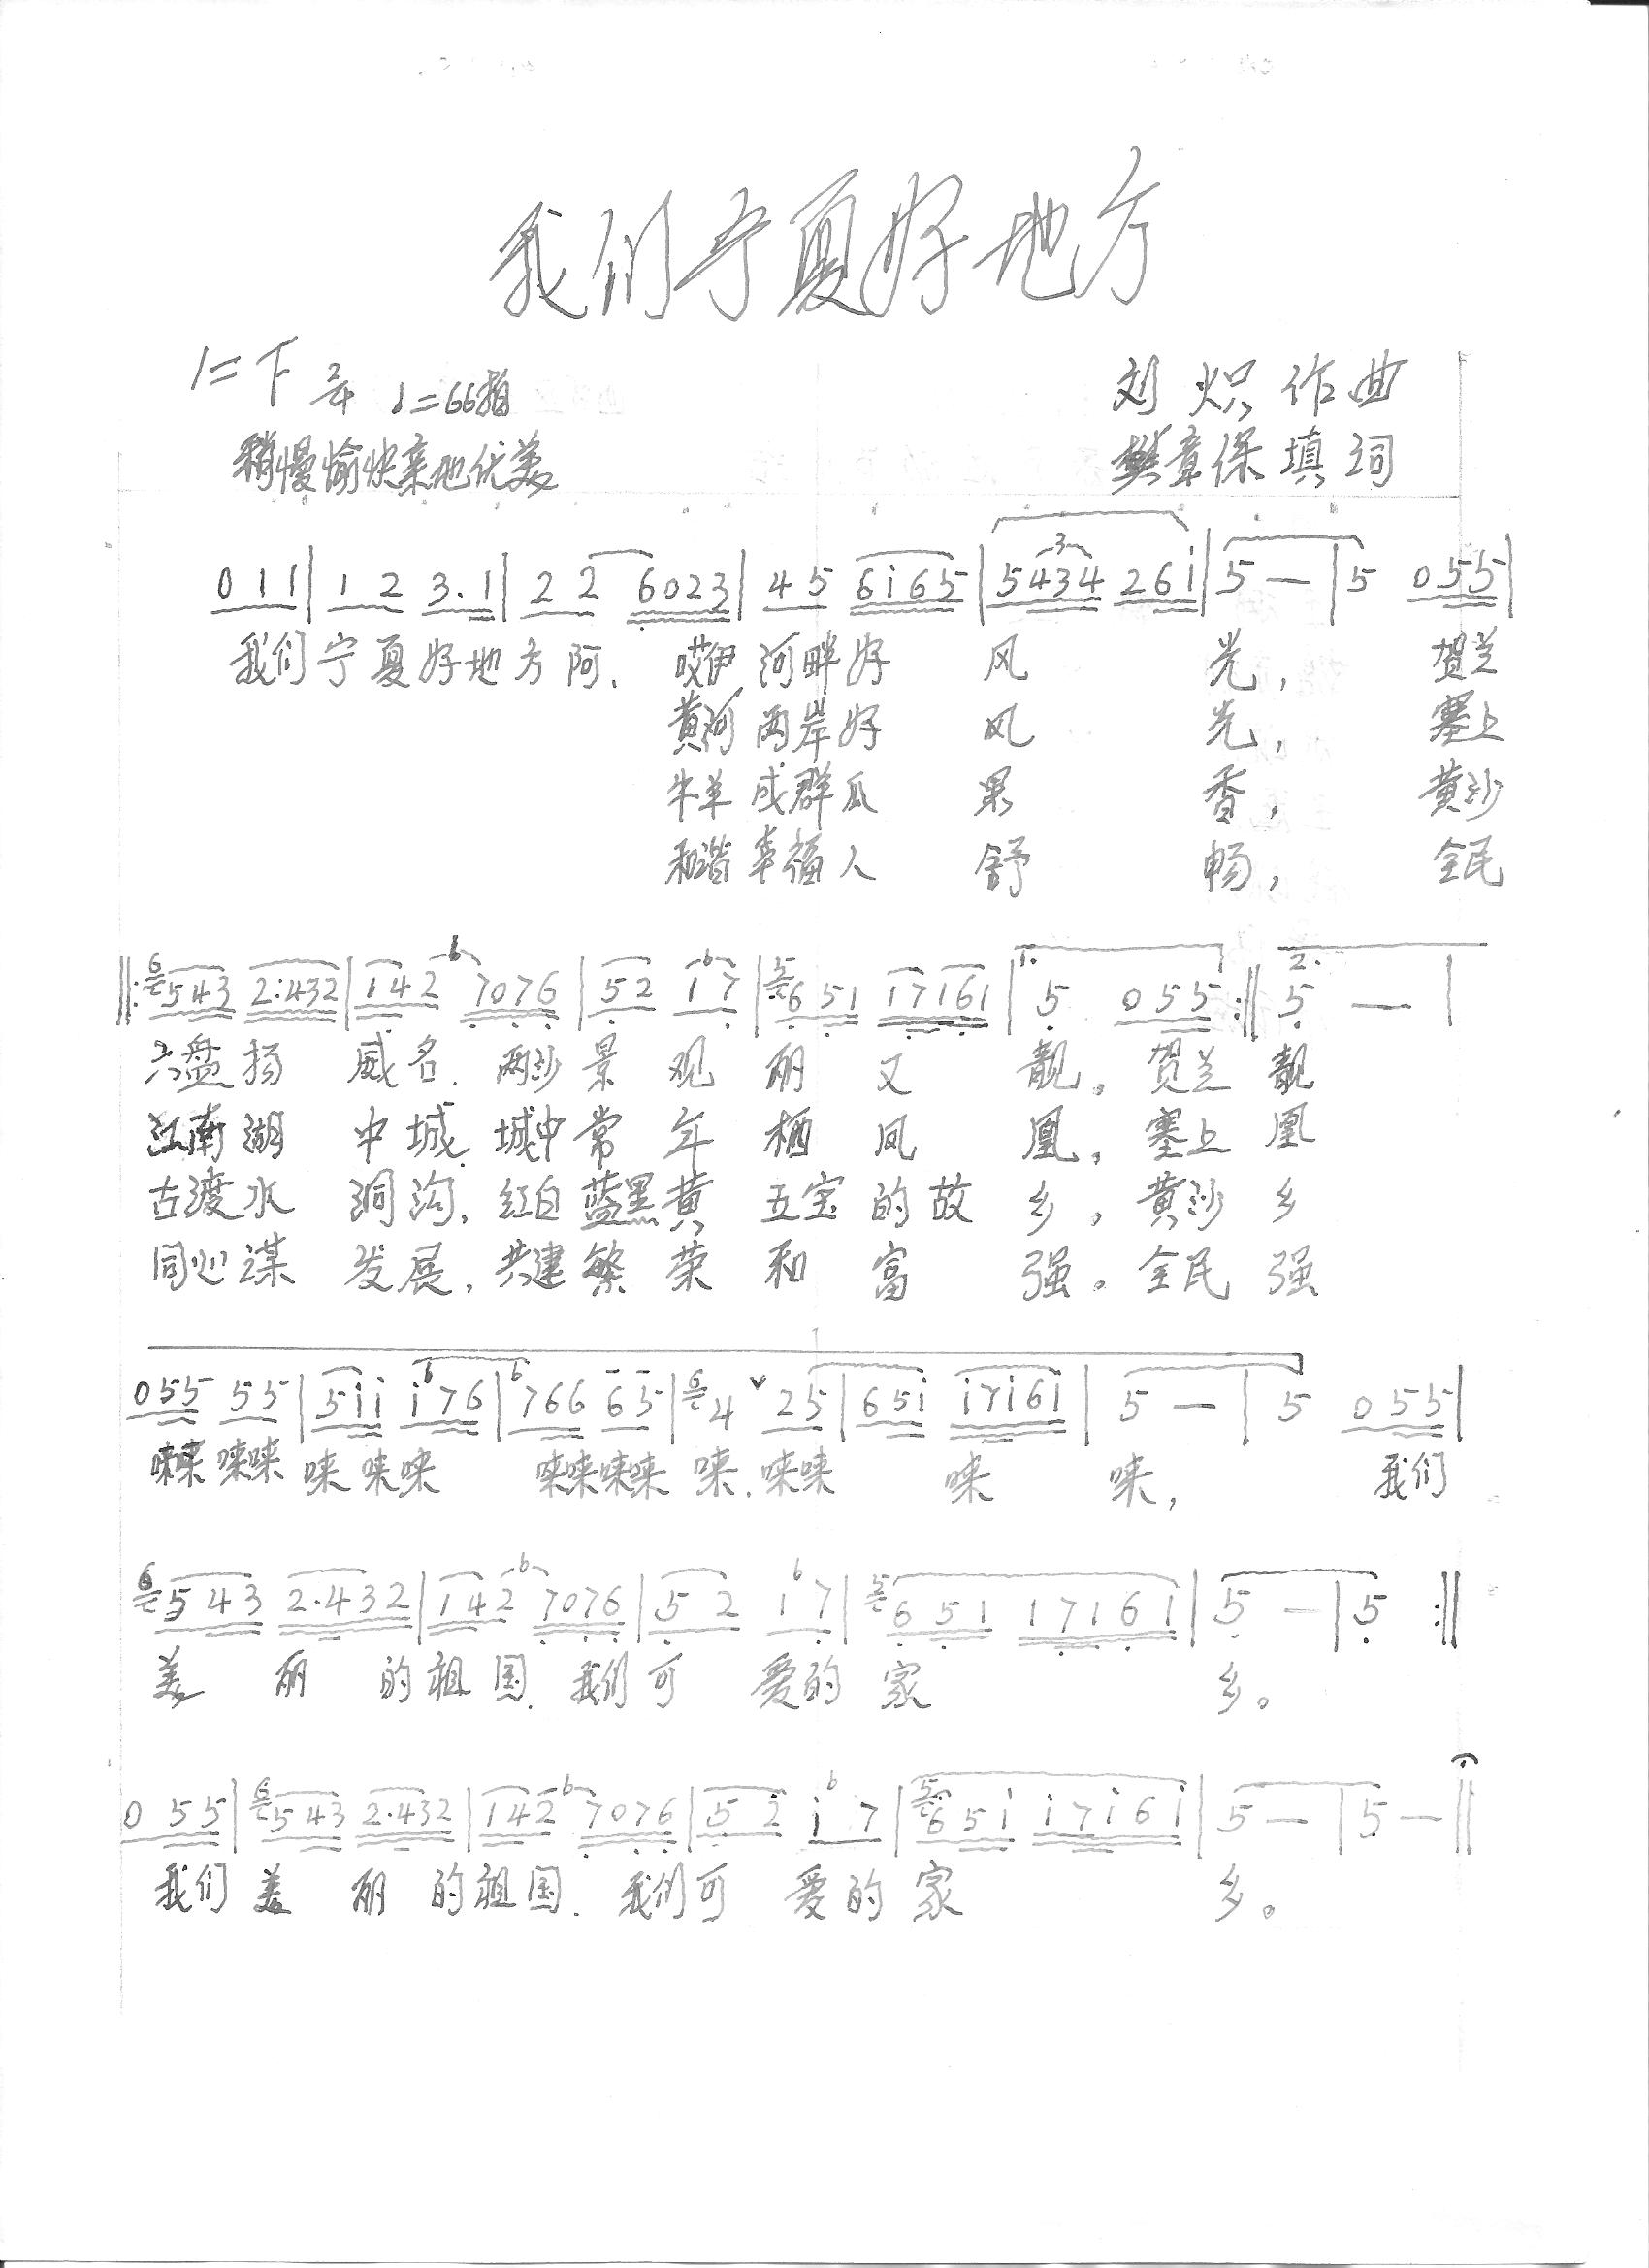 我们宁夏好地方
1=F 2/4 ♩=66拍
刘炽作曲
稍慢愉快亲地优美
樊章保填词
0 1 1 | 1 2 3. 1 | 2 2 6 0 2 3 | 4 5 6 i 6 5 | 5 4 3 4 2 6 i | 5 — | 5 0 5 5 |
我们宁夏好地方阿、哎伊河畔好风光，贺兰
黄河两岸好风光，塞上
牛羊成群瓜果香，黄沙
和谐幸福人舒畅，全民
‖: 6 5 4 3 2. 4 3 2 | 1 4 2 b7 0 7 6 | 5 2 1 b7 | 5 6 5 1 1 7 1 6 1 | 1. 5 0 5 5 :‖ 2. 5 — |
六盘扬威名、两沙景观丽又靓。贺兰靓
江南湖中城、城中常年栖凤凰，塞上凰
古渡水洞沟、红白蓝黑黄五宝的故乡，黄沙乡
同心谋发展，共建繁荣和富强。全民强
0 5 5 5 5 | 5 i i i b7 6 | b7 6 6 6 5 | 6 4 ∨ 2 5 | 6 5 i i 7 i 6 i | 5 — | 5 0 5 5 |
唻唻唻唻唻唻唻唻唻唻唻唻、唻唻唻唻，我们
6 5 4 3 2. 4 3 2 | 1 4 2 b7 0 7 6 | 5 2 1 b7 | 5 6 5 1 1 7 1 6 1 | 5 — | 5 :‖
美丽的祖国、我们可爱的家乡。
0 5 5 | 6 5 4 3 2. 4 3 2 | 1 4 2 b7 0 7 6 | 5 2 i b7 | 5 6 5 i i 7 i 6 i | 5 — | 5 — ‖
我们美丽的祖国、我们可爱的家乡。